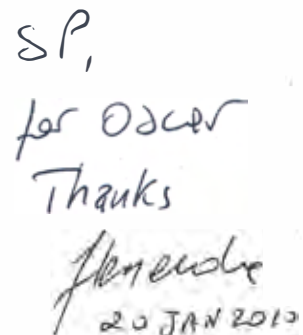 SP,
for Oscar
Thanks
20 JAN 2010